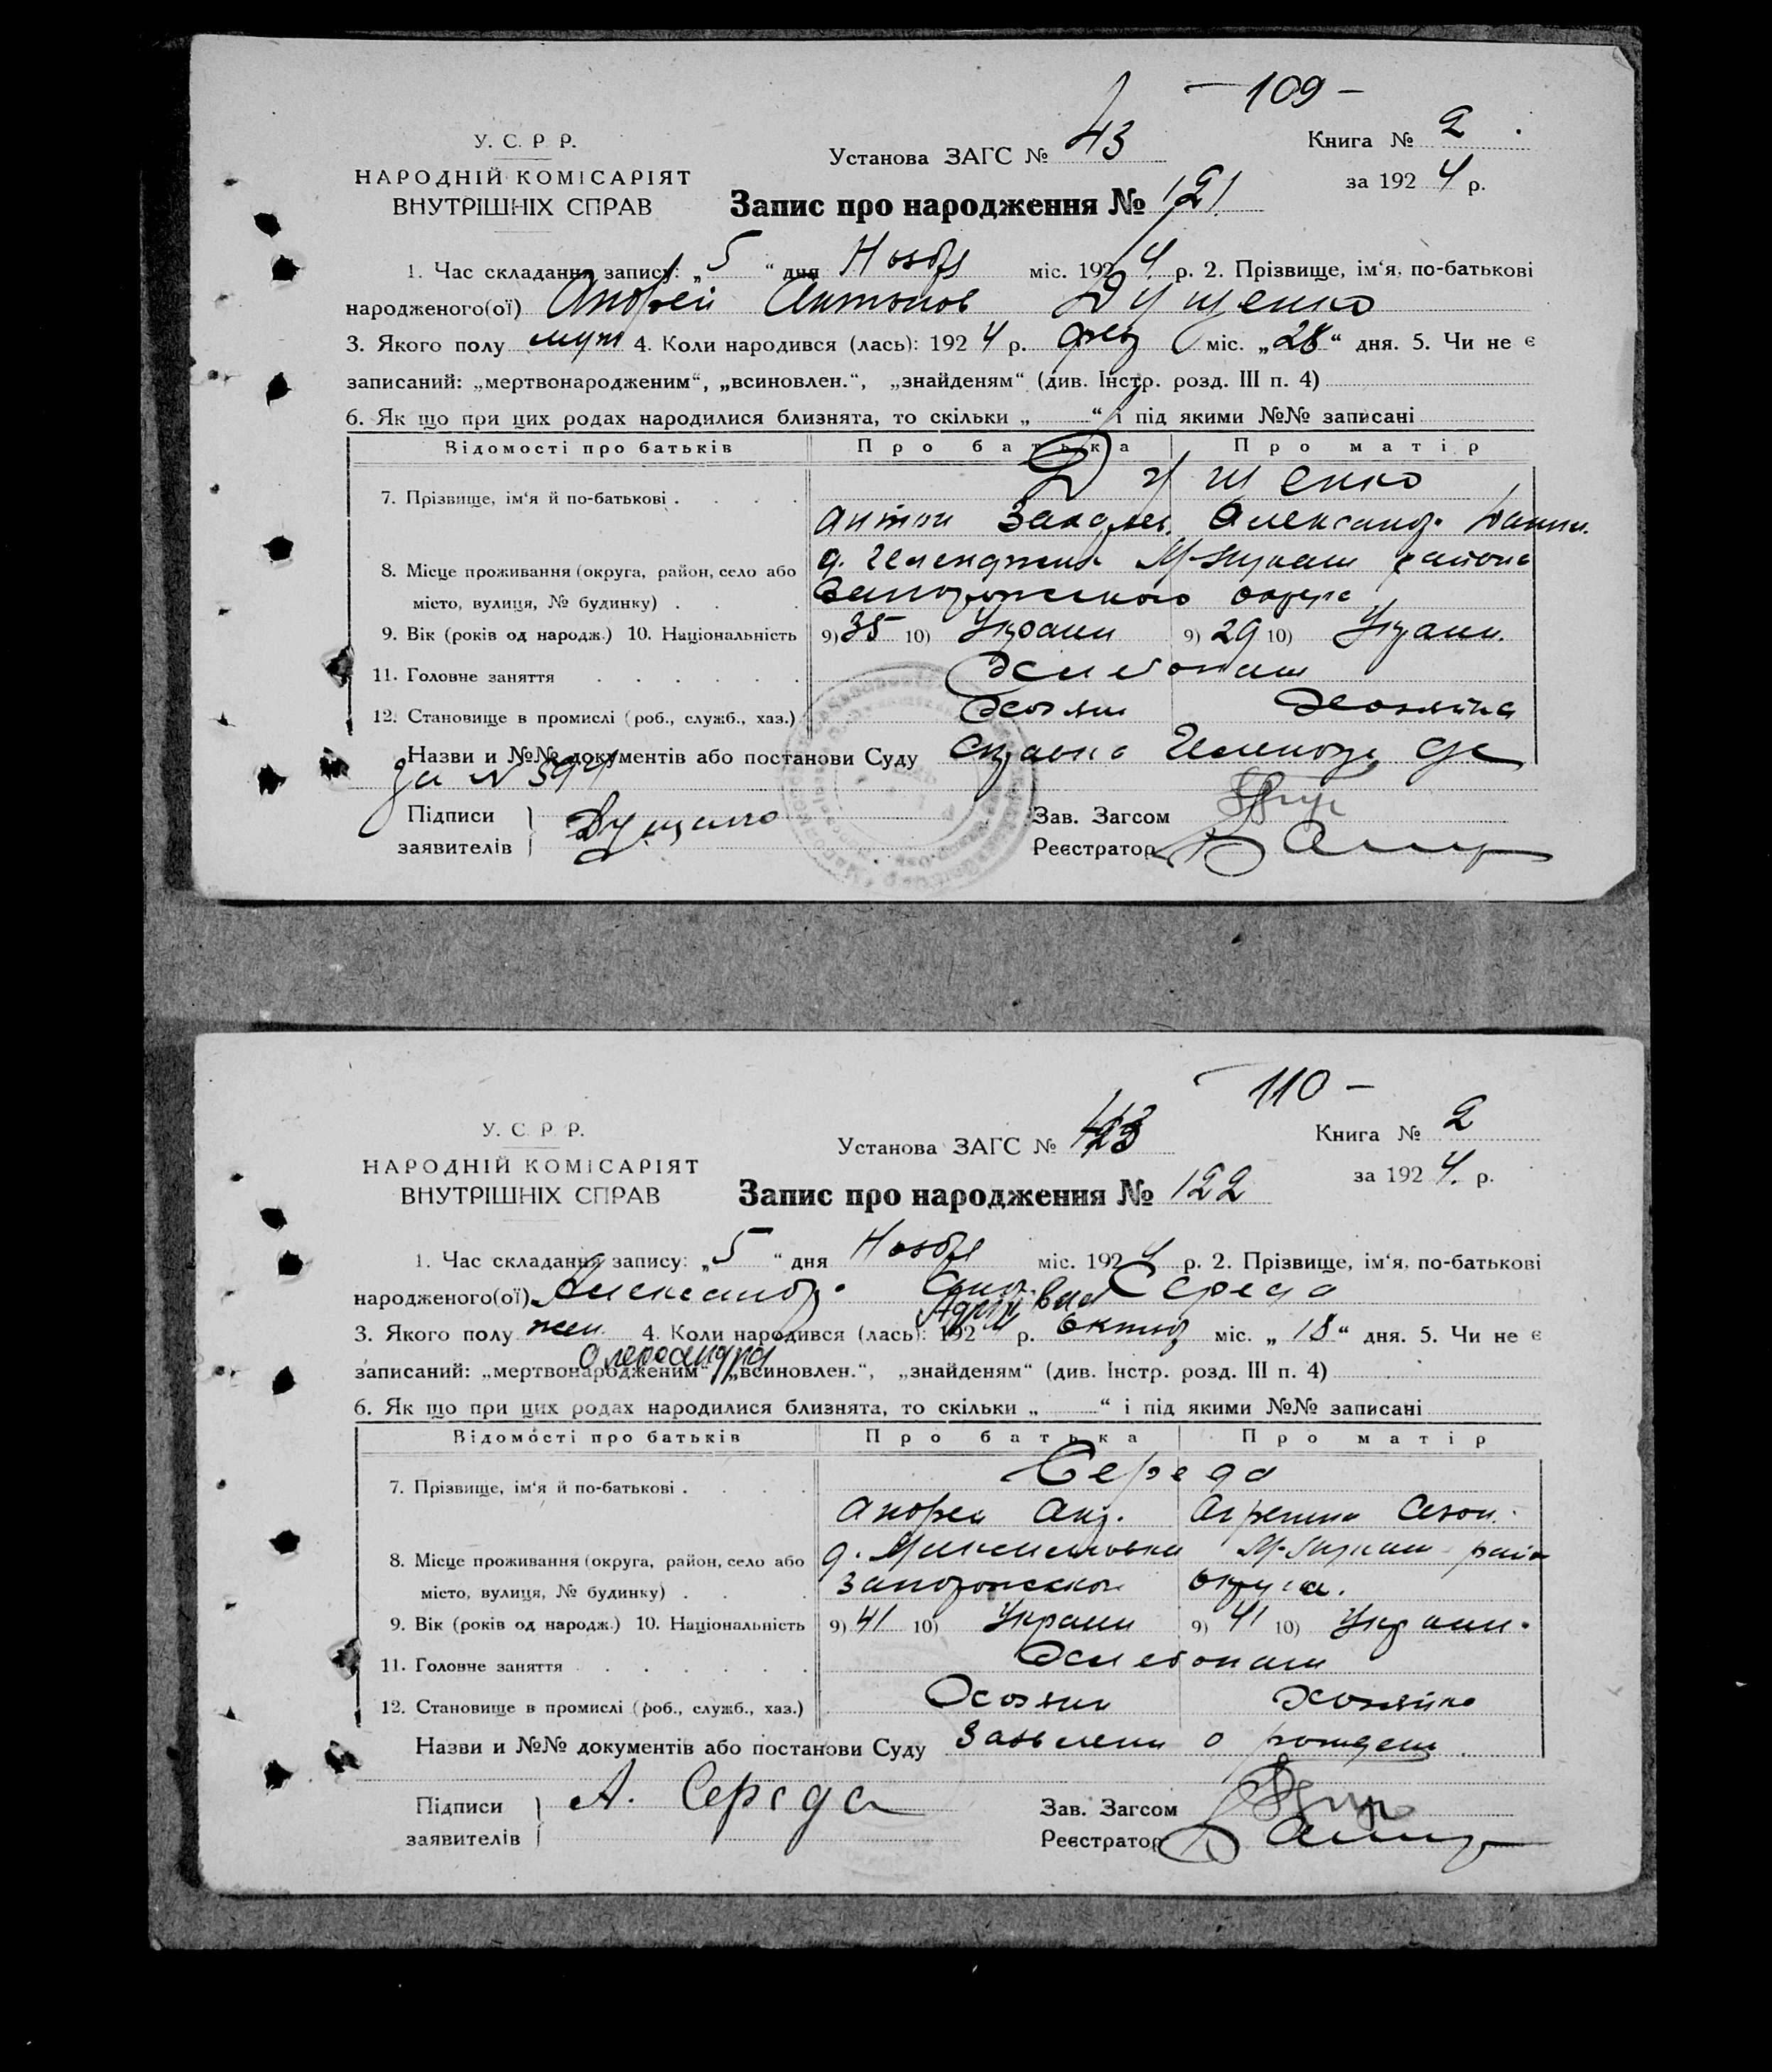 — 109 —
У. С. Р. Р.
НАРОДНІЙ КОМІСАРІЯТ
ВНУТРІШНІХ СПРАВ
Установа ЗАГС № 43
Книга № 2
за 1924 р.
Запис про народження № 121
1. Час складання запису: „5“ дня Ноябр міс. 1924 р. 2. Прізвище, ім‘я, по-батькові
народженого(ої) Андрей Антонов Дущенко
3. Якого полу муж 4. Коли народився (лась): 1924 р. фев міс. „28“ дня. 5. Чи не є
записаний: „мертвонародженим“, „всиновлен.“, „знайденям“ (див. Інстр. розд. III п. 4)
6. Як що при цих родах народилися близнята, то скільки „ “ і під якими №№ записані
Відомості про батьків Про батька Про матір
7. Прізвище, ім‘я й по-батькові . . . . Дущенко
Антон Александ.
8. Місце проживання (округа, район, село або
місто, вулиця, № будинку) . . . Запорожского округа
района
9. Вік (років од народж.) 10. Національність 9) 35 10) Украин 9) 29 10) Украин.
11. Головне заняття . . . . . . Хлебопаш
12. Становище в промислі (роб., служб., хаз.) Хозяин Хозяйка
Назви и №№ документів або постанови Суду Справка
за N
Підписи
заявителів
Дущенко
Зав. Загсом
Реєстратор
— 110 —
У. С. Р. Р.
НАРОДНІЙ КОМІСАРІЯТ
ВНУТРІШНІХ СПРАВ
Установа ЗАГС № 43
Книга № 2
за 1924. р.
Запис про народження № 122
1. Час складання запису: „5“ дня Ноябр міс. 1924 р. 2. Прізвище, ім‘я, по-батькові
народженого(ої) Александр. Анд. Середа
Андріївна
3. Якого полу жен. 4. Коли народився (лась): 1924 р. Октяб міс. „18“ дня. 5. Чи не є
Олександра
записаний: „мертвонародженим“ „всиновлен.“, „знайденям“ (див. Інстр. розд. III п. 4)
6. Як що при цих родах народилися близнята, то скільки „ “ і під якими №№ записані
Відомості про батьків Про батька Про матір
7. Прізвище, ім‘я й по-батькові . . . . Середа
Андрей Анд. Агрепина
8. Місце проживання (округа, район, село або
місто, вулиця, № будинку) . . . Запорожском округа.
9. Вік (років од народж.) 10. Національність 9) 41 10) Украин 9) 41 10) Украин.
11. Головне заняття . . . . . . Хлебопаш
12. Становище в промислі (роб., служб., хаз.) Хозяин Хозяйка
Назви и №№ документів або постанови Суду Заявлени о рожден.
Підписи
заявителів
А. Середа
Зав. Загсом
Реєстратор